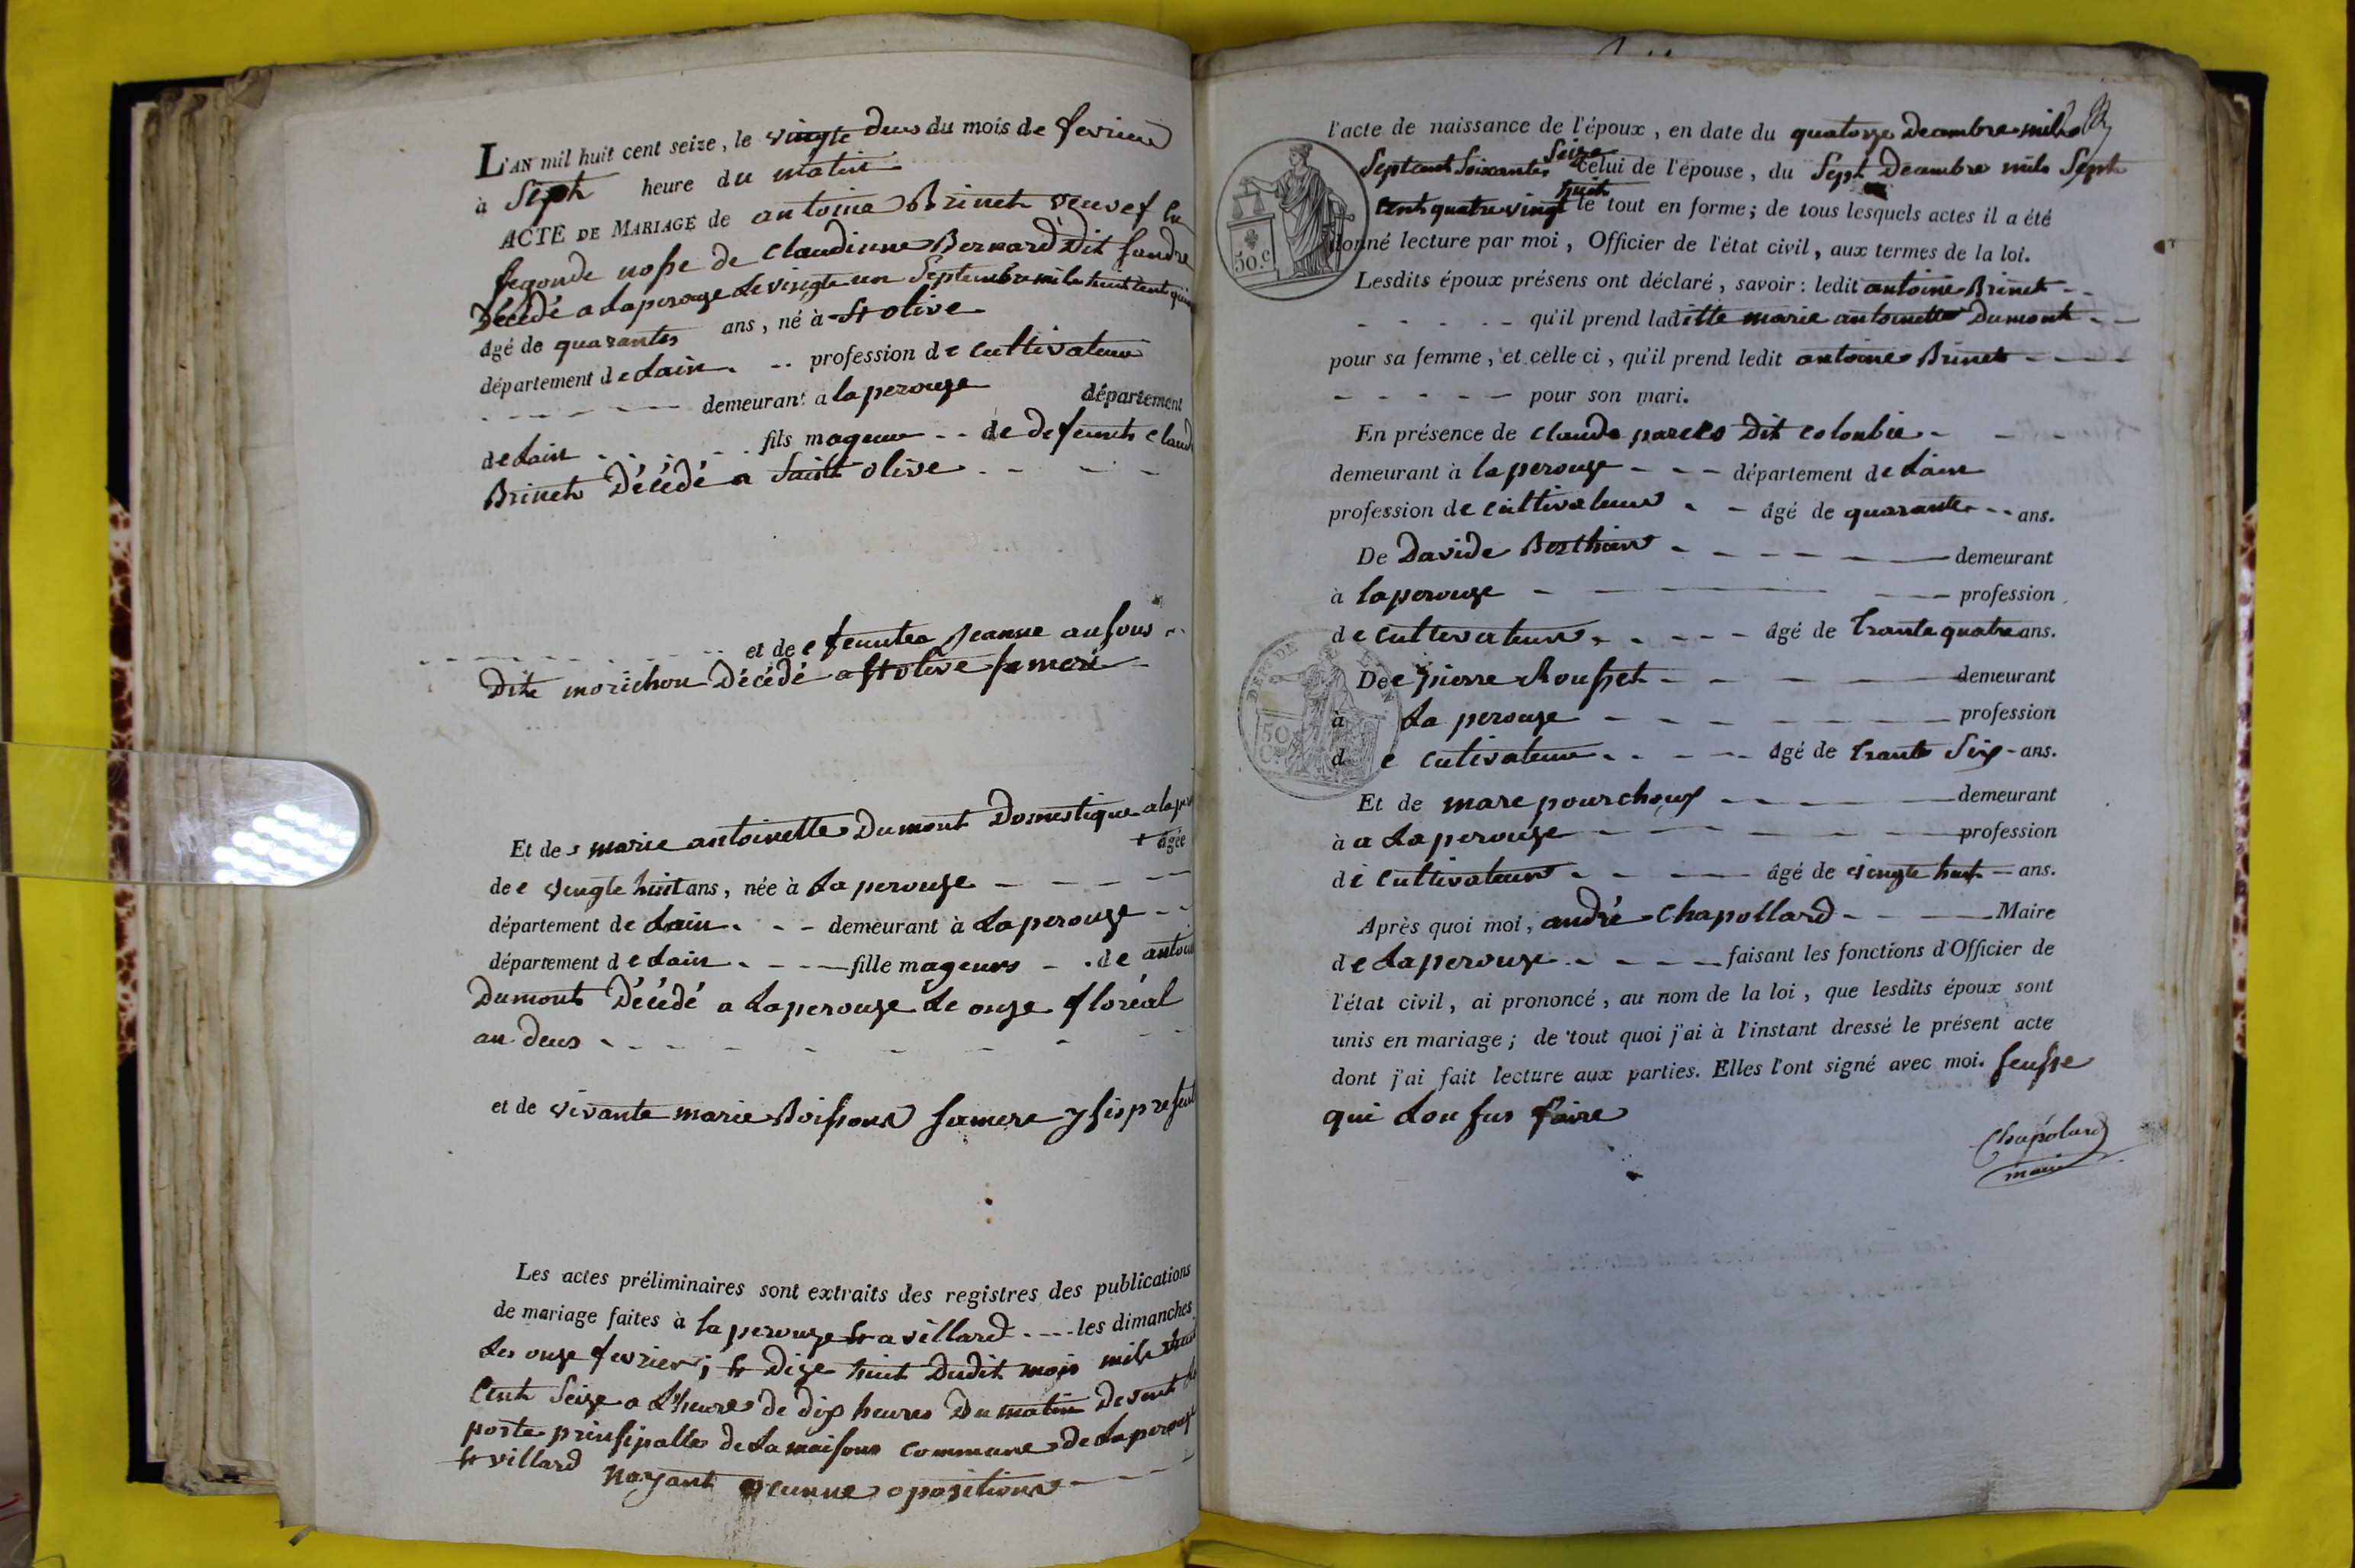 L'AN mil huit cent seize, le vingte deus du mois de fevrier
à Septh heure du matin
ACTE DE MARIAGE de antoine Brineth veuvef en
segonde nosse de claudinne Bernard Dit
Décédé a Laperouze Le vingte un Septembre mile huit cent
âgé de quarantes ans, né à St olive
département de Lain. .. profession de cultivateur
demeurant a la perouze département
de Lain fils mageur .. de defeunts claude
Brineth Décédé a Saint olive
et de e feuntea jeanne
Dite morichon Décédé a St olive sa mere
Et de marie antoinette Dumont Domestique a la per
+ âgée
de e vingte huit ans, née à La perouze
département de Lain. demeurant à La perouze
département de Lain. fille mageurs .de antoin
Dumonts Décédé a La perouze Le onze floréal
an deus
et de vivante marie Boissons sa mere y sis present
Les actes préliminaires sont extraits des registres des publications
de mariage faites à la perouze et a villard .... les dimanches
Les onze fevrier; et dize huit Dudit mois mile huit
Cent Seize a L'heure de dix heures Du matin Devent la
porte prinsipalle de La maisons commune de La perouze
et villard Nayant aucunne opositions
l'acte de naissance de l'époux, en date du quatorze decembre mil
Septcent Soixantes Seize celui de l'épouse, du Sept Decembre mile Septe
Cent quatre vingt huit le tout en forme; de tous lesquels actes il a été
donné lecture par moi, Officier de l'état civil, aux termes de la loi.
50.c
Lesdits époux présens ont déclaré, savoir: ledit antoine Brineth
qu'il prend laditte marie antoinette Dumont
pour sa femme, et celle ci, qu'il prend ledit antoine Brineth
pour son mari.
En présence de Claude Dit colonbie
demeurant à la perouze département de Lain
profession de cultivateur âgé de quarante ans.
De Davide Berthier demeurant
à laperouze profession
de cultivateur âgé de trante quatre ans.
De pierre Rousset demeurant
à La perouze profession
50
de cutivateur âgé de trante Six ans.
Et de marc pourchoux demeurant
à a La perouze profession
de Cultivateur âgé de vingte huit ans.
Après quoi moi, andré Chapollard Maire
de Laperouze faisant les fonctions d'Officier de
l'état civil, ai prononcé, au nom de la loi, que lesdits époux sont
unis en mariage; de tout quoi j'ai à l'instant dressé le présent acte
dont j'ai fait lecture aux parties. Elles l'ont signé avec moi. seusse
qui Lon sus faire
Chapolard
maire